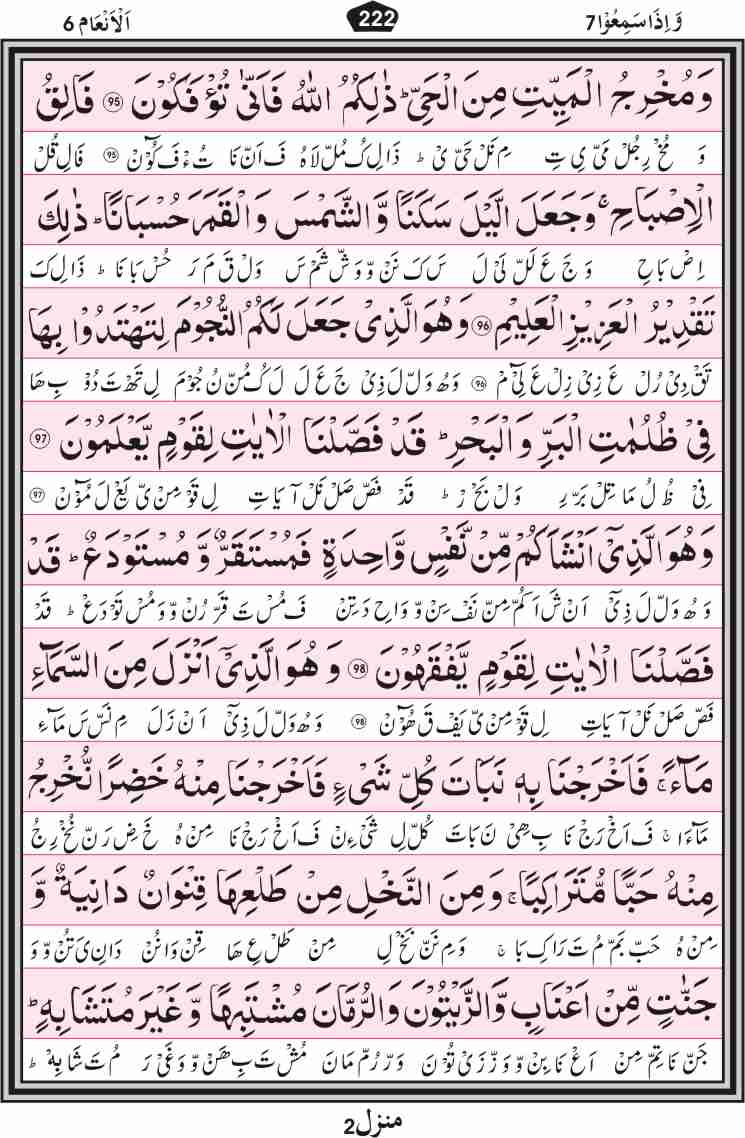 وَاِذَا سَمِعُوْا 7 222 اَلْاَنْعَام 6
وَمُخْرِجُ الْمَيِّتِ مِنَ الْحَيِّ ؕ ذٰلِكُمُ اللّٰهُ فَاَنّٰى تُؤْفَكُوْنَ ۝95 فَالِقُ
وَ مُخْ رِجُلْ مَىْ يِ تِ مِ نَلْ حَىْ ىْ ؕ ذَا لِ كُ مُلْ لَا هُ فَ اَنْ نَا تُ ءْ فَ كُوْنْ ۝95 فَا لِ قُلْ
الْاِصْبَاحِ ۚ وَجَعَلَ الَّيْلَ سَكَنًا وَّالشَّمْسَ وَالْقَمَرَ حُسْبَانًا ؕ ذٰلِكَ
اِصْ بَا حِ وَ جَ عَ لَلْ لَىْ لَ سَ كَ نَنْ وَ وَشْ شَمْ سَ وَلْ قَ مَ رَ حُسْ بَا نَا ؕ ذَا لِ كَ
تَقْدِيْرُ الْعَزِيْزِ الْعَلِيْمِ ۝96 وَهُوَ الَّذِيْ جَعَلَ لَكُمُ النُّجُوْمَ لِتَهْتَدُوْا بِهَا
تَقْ دِىْ رُلْ عَ زِىْ زِلْ عَ لِىْ مْ ۝96 وَ هُ وَلْ لَ ذِىْ جَ عَ لَ لَ كُ مُنْ نُ جُوْمَ لِ تَهْ تَ دُوْ بِ هَا
فِيْ ظُلُمٰتِ الْبَرِّ وَالْبَحْرِ ؕ قَدْ فَصَّلْنَا الْاٰيٰتِ لِقَوْمٍ يَّعْلَمُوْنَ ۝97
فِىْ ظُ لُ مَا تِلْ بَرْ رِ وَلْ بَحْ رْ ؕ قَدْ فَصْ صَلْ نَلْ آ يَا تِ لِ قَوْ مِنْ ىْ يَعْ لَ مُوْنْ ۝97
وَهُوَ الَّذِيْٓ اَنْشَاَكُمْ مِّنْ نَّفْسٍ وَّاحِدَةٍ فَمُسْتَقَرٌّ وَّمُسْتَوْدَعٌ ؕ قَدْ
وَ هُ وَلْ لَ ذِىْٓ اَنْ شَ اَ كُمْ مِنْ نَفْ سِنْ وَ وَا حِ دَ تِنْ فَ مُسْ تَ قَرْ رُنْ وَ وَ مُسْ تَوْ دَعْ ؕ قَدْ
فَصَّلْنَا الْاٰيٰتِ لِقَوْمٍ يَّفْقَهُوْنَ ۝98 وَهُوَ الَّذِيْٓ اَنْزَلَ مِنَ السَّمَآءِ
فَصْ صَلْ نَلْ آ يَا تِ لِ قَوْ مِنْ ىْ يَفْ قَ هُوْنْ ۝98 وَ هُ وَلْ لَ ذِىْٓ اَنْ زَ لَ مِ نَسْ سَ مَآءِ
مَآءً ۚ فَاَخْرَجْنَا بِهٖ نَبَاتَ كُلِّ شَيْءٍ فَاَخْرَجْنَا مِنْهُ خَضِرًا نُّخْرِجُ
مَآءَا ۚ فَ اَخْ رَجْ نَا بِ هِىْ نَ بَا تَ كُلْ لِ شَىْ ءِنْ فَ اَخْ رَجْ نَا مِنْ هُ خَ ضِ رَنْ نُخْ رِجُ
مِنْهُ حَبًّا مُّتَرَاكِبًا ۚ وَمِنَ النَّخْلِ مِنْ طَلْعِهَا قِنْوَانٌ دَانِيَةٌ وَّ
مِنْ هُ حَبْ بَمْ مُ تَ رَا كِ بَا ۚ وَ مِ نَنْ نَخْ لِ مِنْ طَلْ عِ هَا قِنْ وَا نُنْ دَا نِ ىَ تُنْ وَ وَ
جَنّٰتٍ مِّنْ اَعْنَابٍ وَّالزَّيْتُوْنَ وَالرُّمَّانَ مُشْتَبِهًا وَّغَيْرَ مُتَشَابِهٍ ؕ
جَنْ نَا تِمْ مِنْ اَعْ نَا بِنْ وَ وَزْ زَىْ تُوْ نَ وَرْ رُمْ مَا نَ مُشْ تَ بِ هَنْ وَ وَ غَىْ رَ مُ تَ شَا بِهْ ؕ
منزل 2